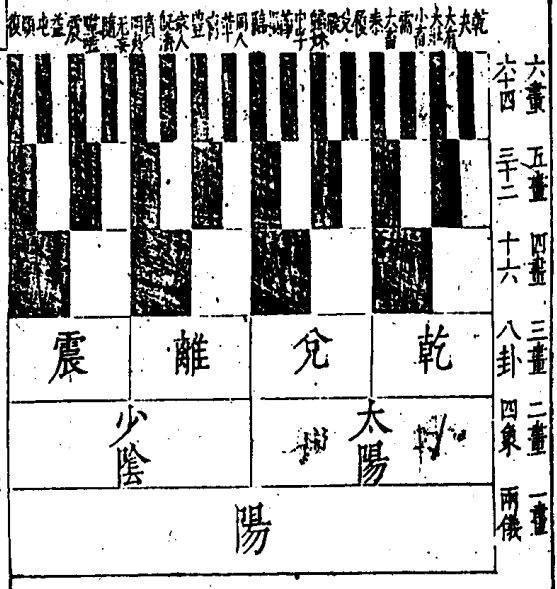 乾
夬
大有
大壯
小畜
需
大畜
泰
履
兌
睽
歸妹
中孚
節
損
臨
同人
革
離
豐
家人
既濟
賁
明夷
无妄
隨
噬嗑
震
益
屯
頤
復
六畫
六十四
五畫
三十二
四畫
十六
三畫
八卦
乾
兌
離
震
二畫
四象
太陽
少陰
一畫
兩儀
陽